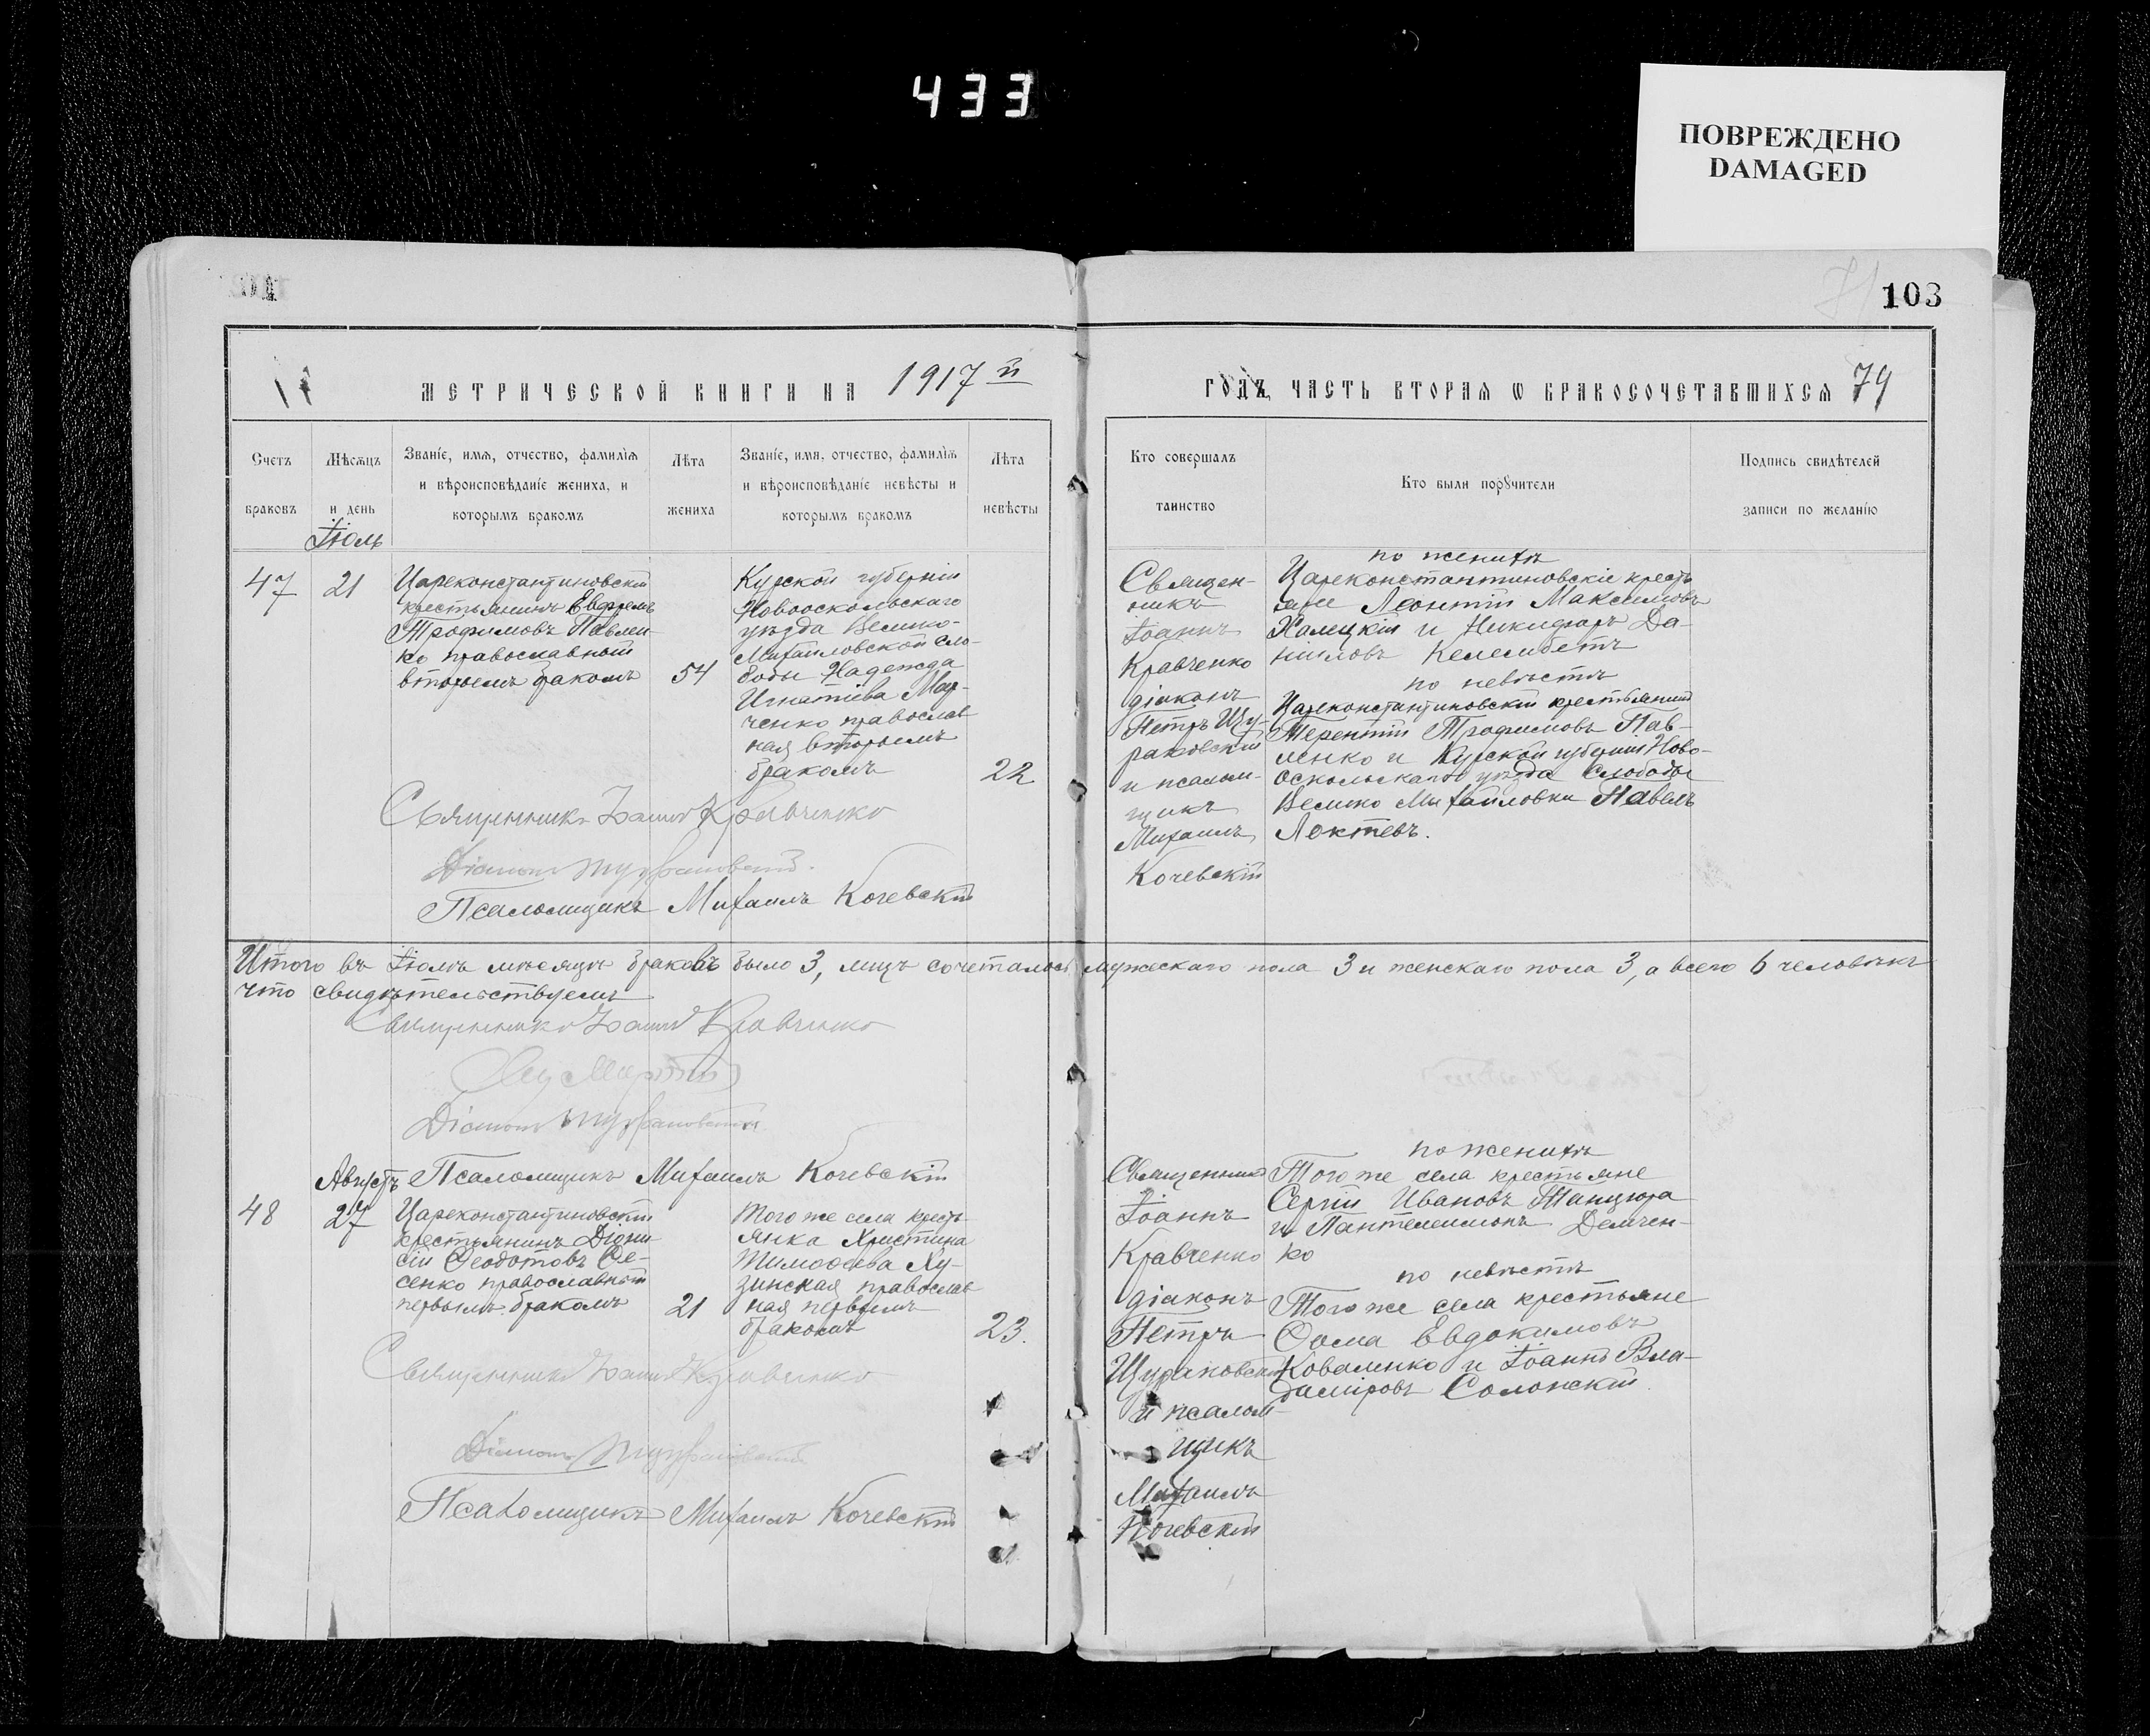 433
ПОВРЕЖДЕНО
DAMAGED
103
МЕТРИЧЕСКОЙ КНИГИ НА 1917 й
ГОДЪ, ЧАСТЬ ВТОРАЯ Ѡ БРАКОСОЧЕТАВШИХСЯ 79
Счетъ
браковъ
Мѣсяцъ
и день
Званіе, имя, отчество, фамилія
и вѣроисповѣданіе жениха, и
которымъ бракомъ
Лѣта
жениха
Званіе, имя, отчество, фамилія
и вѣроисповѣданіе невѣсты и
которымъ бракомъ
Лѣта
невѣсты
Кто совершалъ
таинство
Кто были порꙋчители
Подпись свидѣтелей
записи по желанію
Іюль
47
21
Цареконстантиновскій
крестьянинъ Евфремъ
Трофимовъ Павлен-
ко православный
вторымъ бракомъ
54
Курской губерніи
Новооскольскаго
уѣзда Велико-
Михайловской сло-
боды Надежда
Игнатіева Мар-
ченко православ
ная вторымъ
бракомъ
22
Священ-
никъ
Іоаннъ
Кравченко
діаконъ
Петръ Щу-
раковскій
и псалом-
щикъ
Михаилъ
Кочевскій
по женихѣ
Цареконстантиновскіе кресть
яне Леонтій Максимовъ
Халецкій и Никифоръ Да-
ниловъ Келембетъ
по невѣстѣ
Цареконстантиновскій крестьянинъ
Терентій Трофимовъ Пав-
ленко и Курской губерніи Ново-
оскольскаго уѣзда слободы
Велико Михайловки Павелъ
Локтевъ.
Священникъ Іоаннъ Кравченко
Діаконъ Щураковскій.
Псаломщикъ Михаилъ Кочевскій
Итого въ Іюлѣ мѣсяцѣ браковъ было 3, лицъ сочеталось мужескаго пола 3 и женскаго пола 3, а всего 6 человѣкъ
что свидѣтельствуемъ
Священникъ Іоаннъ Кравченко
Діаконъ Щураковскій
Псаломщикъ Михаилъ Кочевскій
Августъ
48
27
Цареконстантиновскій
крестьянинъ Діони
сій Ѳеодотовъ Фе-
сенко православный
первымъ бракомъ
21
Того же села кресть
янка Христина
Тимоѳеева Ху-
зинская православ
ная первымъ
бракомъ
23.
Священникъ
Іоаннъ
Кравченко
діаконъ
Петръ
Щураковскій
и псалом-
щикъ
Михаилъ
Кочевскій
по женихѣ
Того же села крестьяне
Сергій Ивановъ Танцюра
и Пантелеимонъ Демчен-
ко
по невѣстѣ
Того же села крестьяне
Ѳома Евдокимовъ
Коваленко и Іоаннъ Вла-
диміровъ Солонскій
Священникъ Іоаннъ Кравченко
Діаконъ Щураковскій
Псаломщикъ Михаилъ Кочевскій